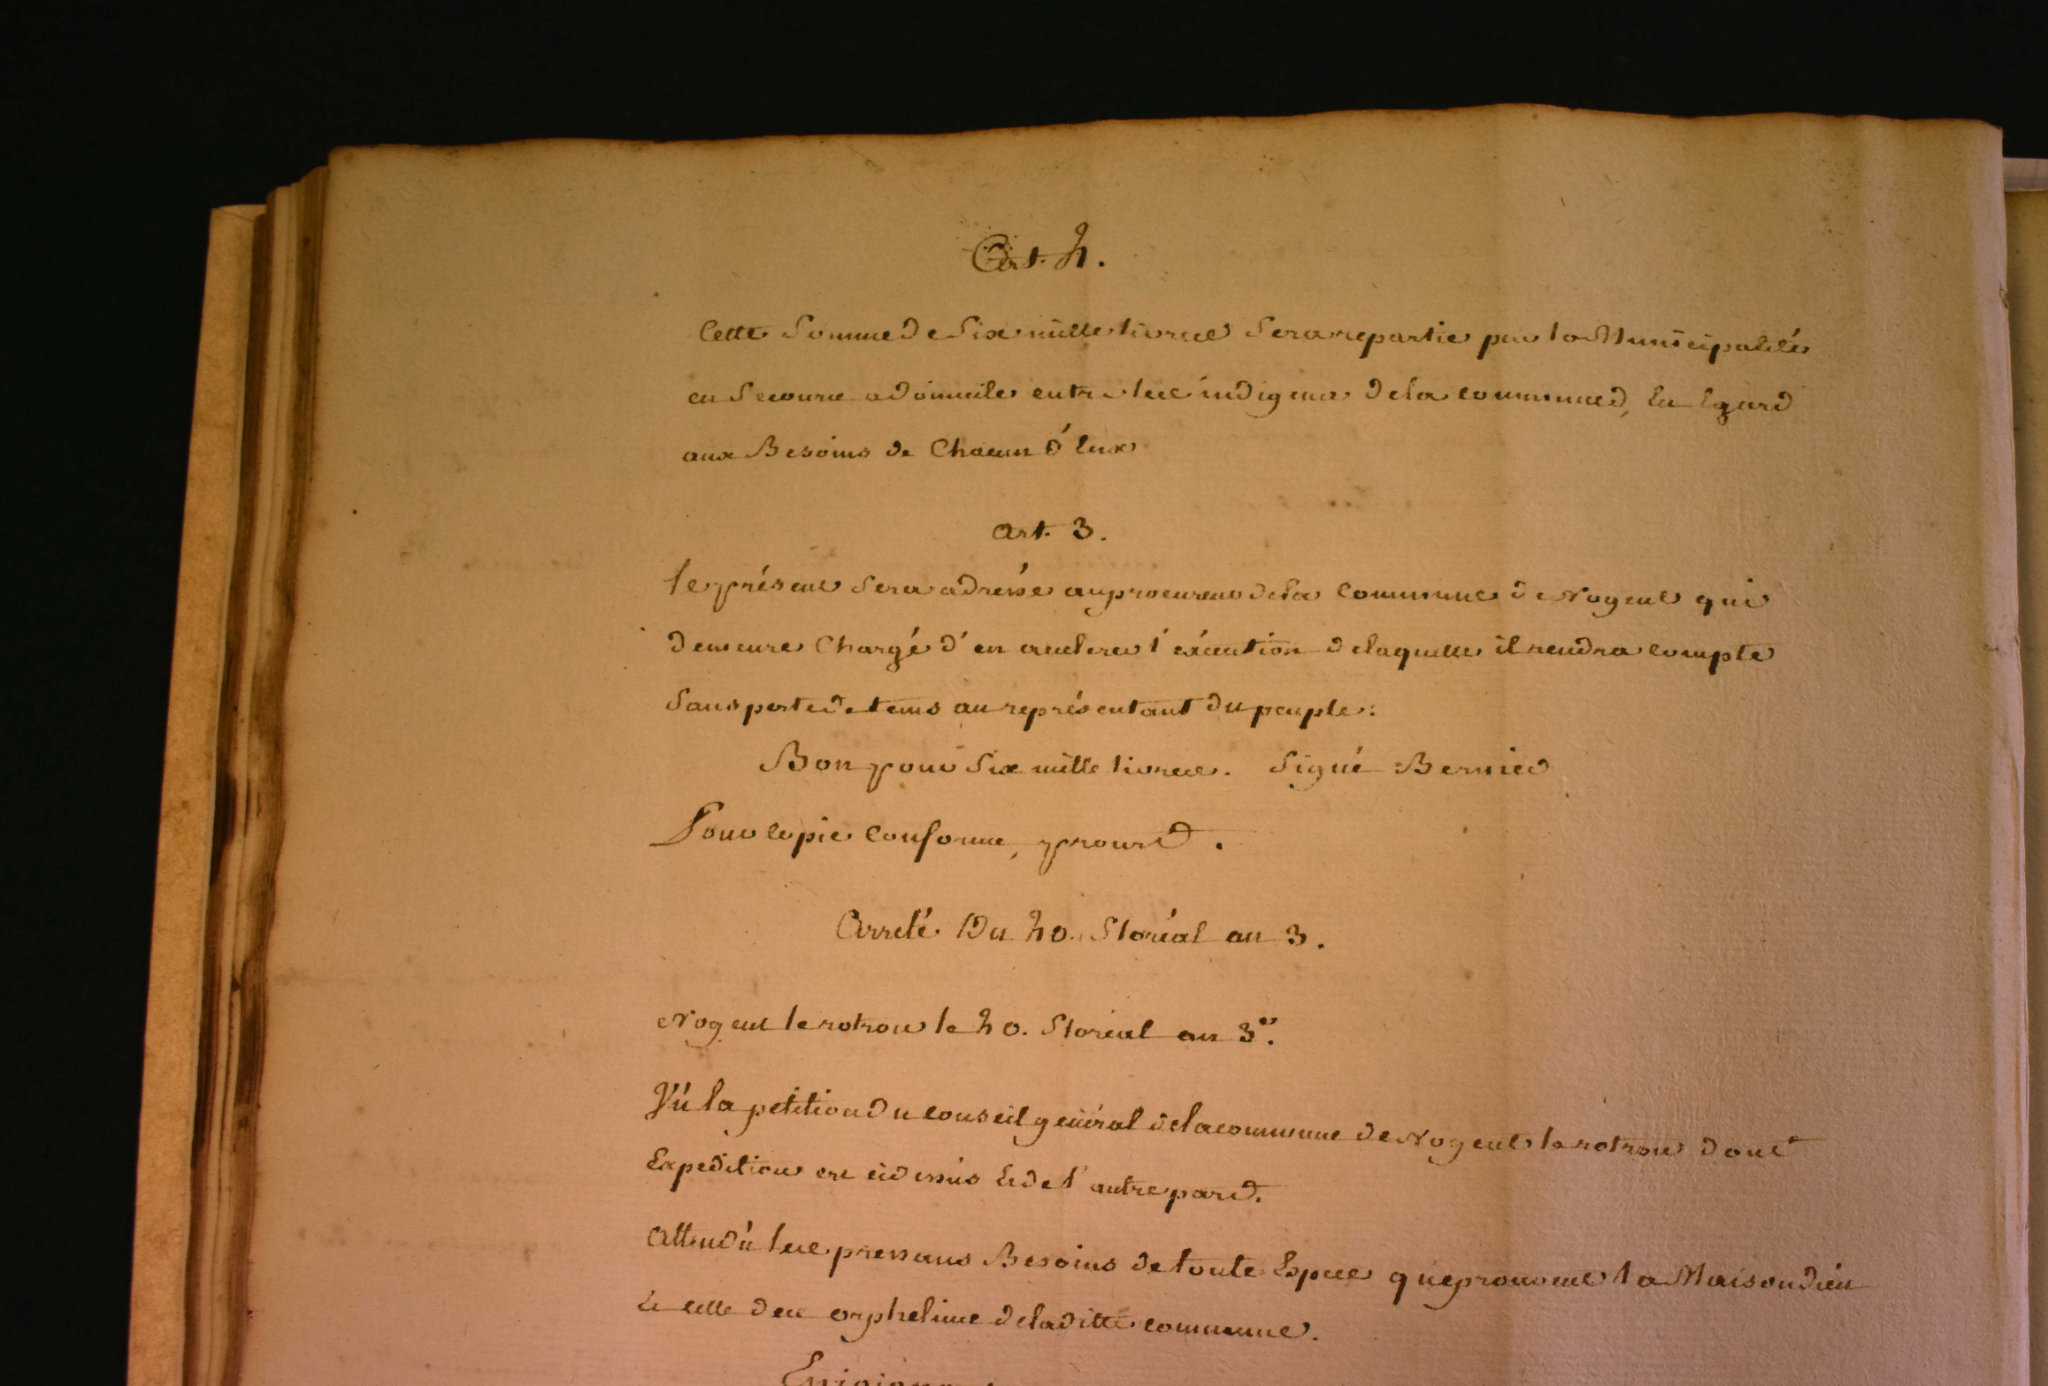 Art. 2.
Cette Somme de Six mille livres Sera repartie par la Municipalité
en Secours a domicile entre les indigens de la commune, Eu Egard
aux Besoins de Chacun d'Eux
art. 3.
le présent Sera adressé au procureur de la Commune de Nogent qui
demeure Chargé d'en acelerer l'éxécution de laquelle il rendra compte
Sans perte de tems au représentant du peuple.
Bon pour Six mille livres. Signé Bernier
Pour Copie Conforme,
Arreté Du 20. floréal an 3.
Nogent le rotrou le 20. floréal an 3e.
Vu la petition du conseil général de la commune de Nogent le rotrou dont
Expedition est cidessus Et de l'autre part.
Attendu les pressans Besoins de toute Espece qu'eprouvent la Maison dieu
Et celle des orphelines de la ditte commune.